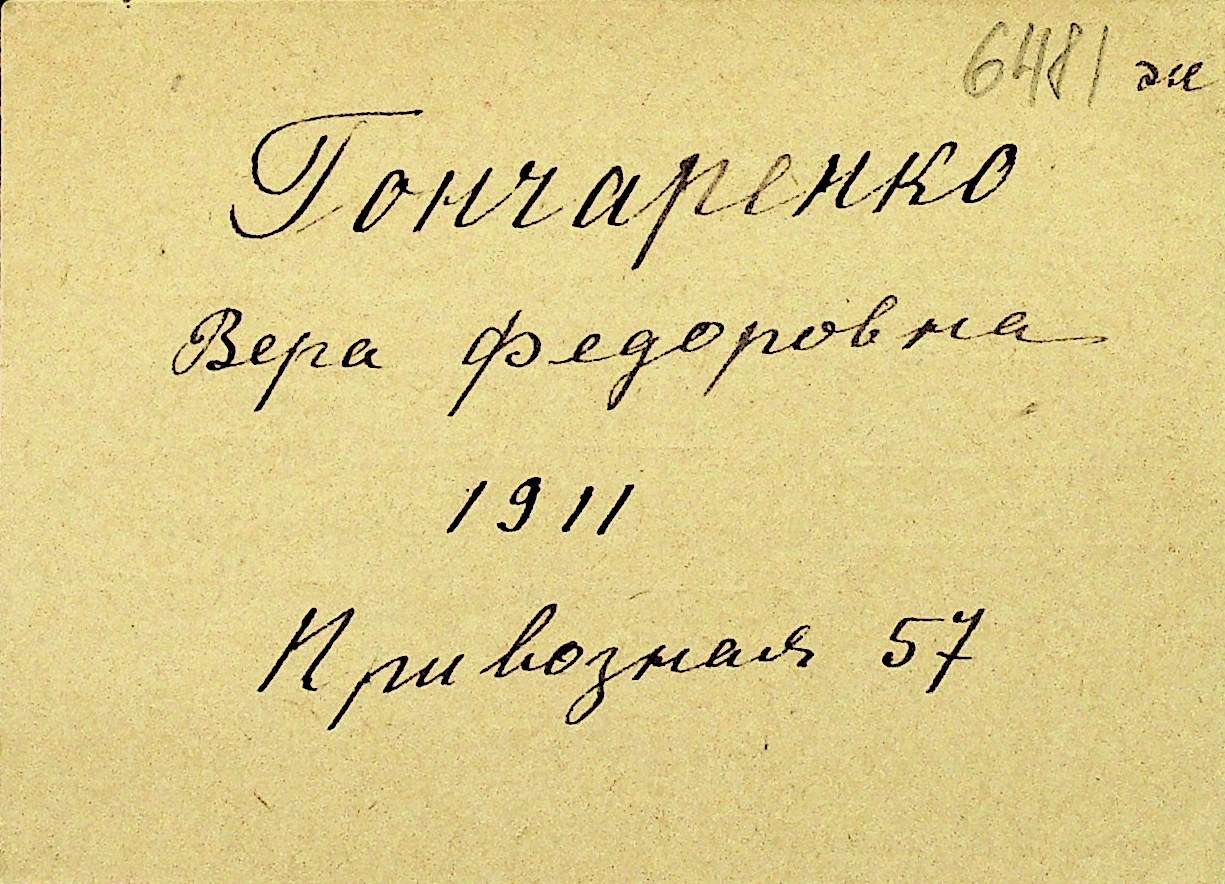 6481 эк
Гончаренко
Вера Федоровна
1911
Привозная 57